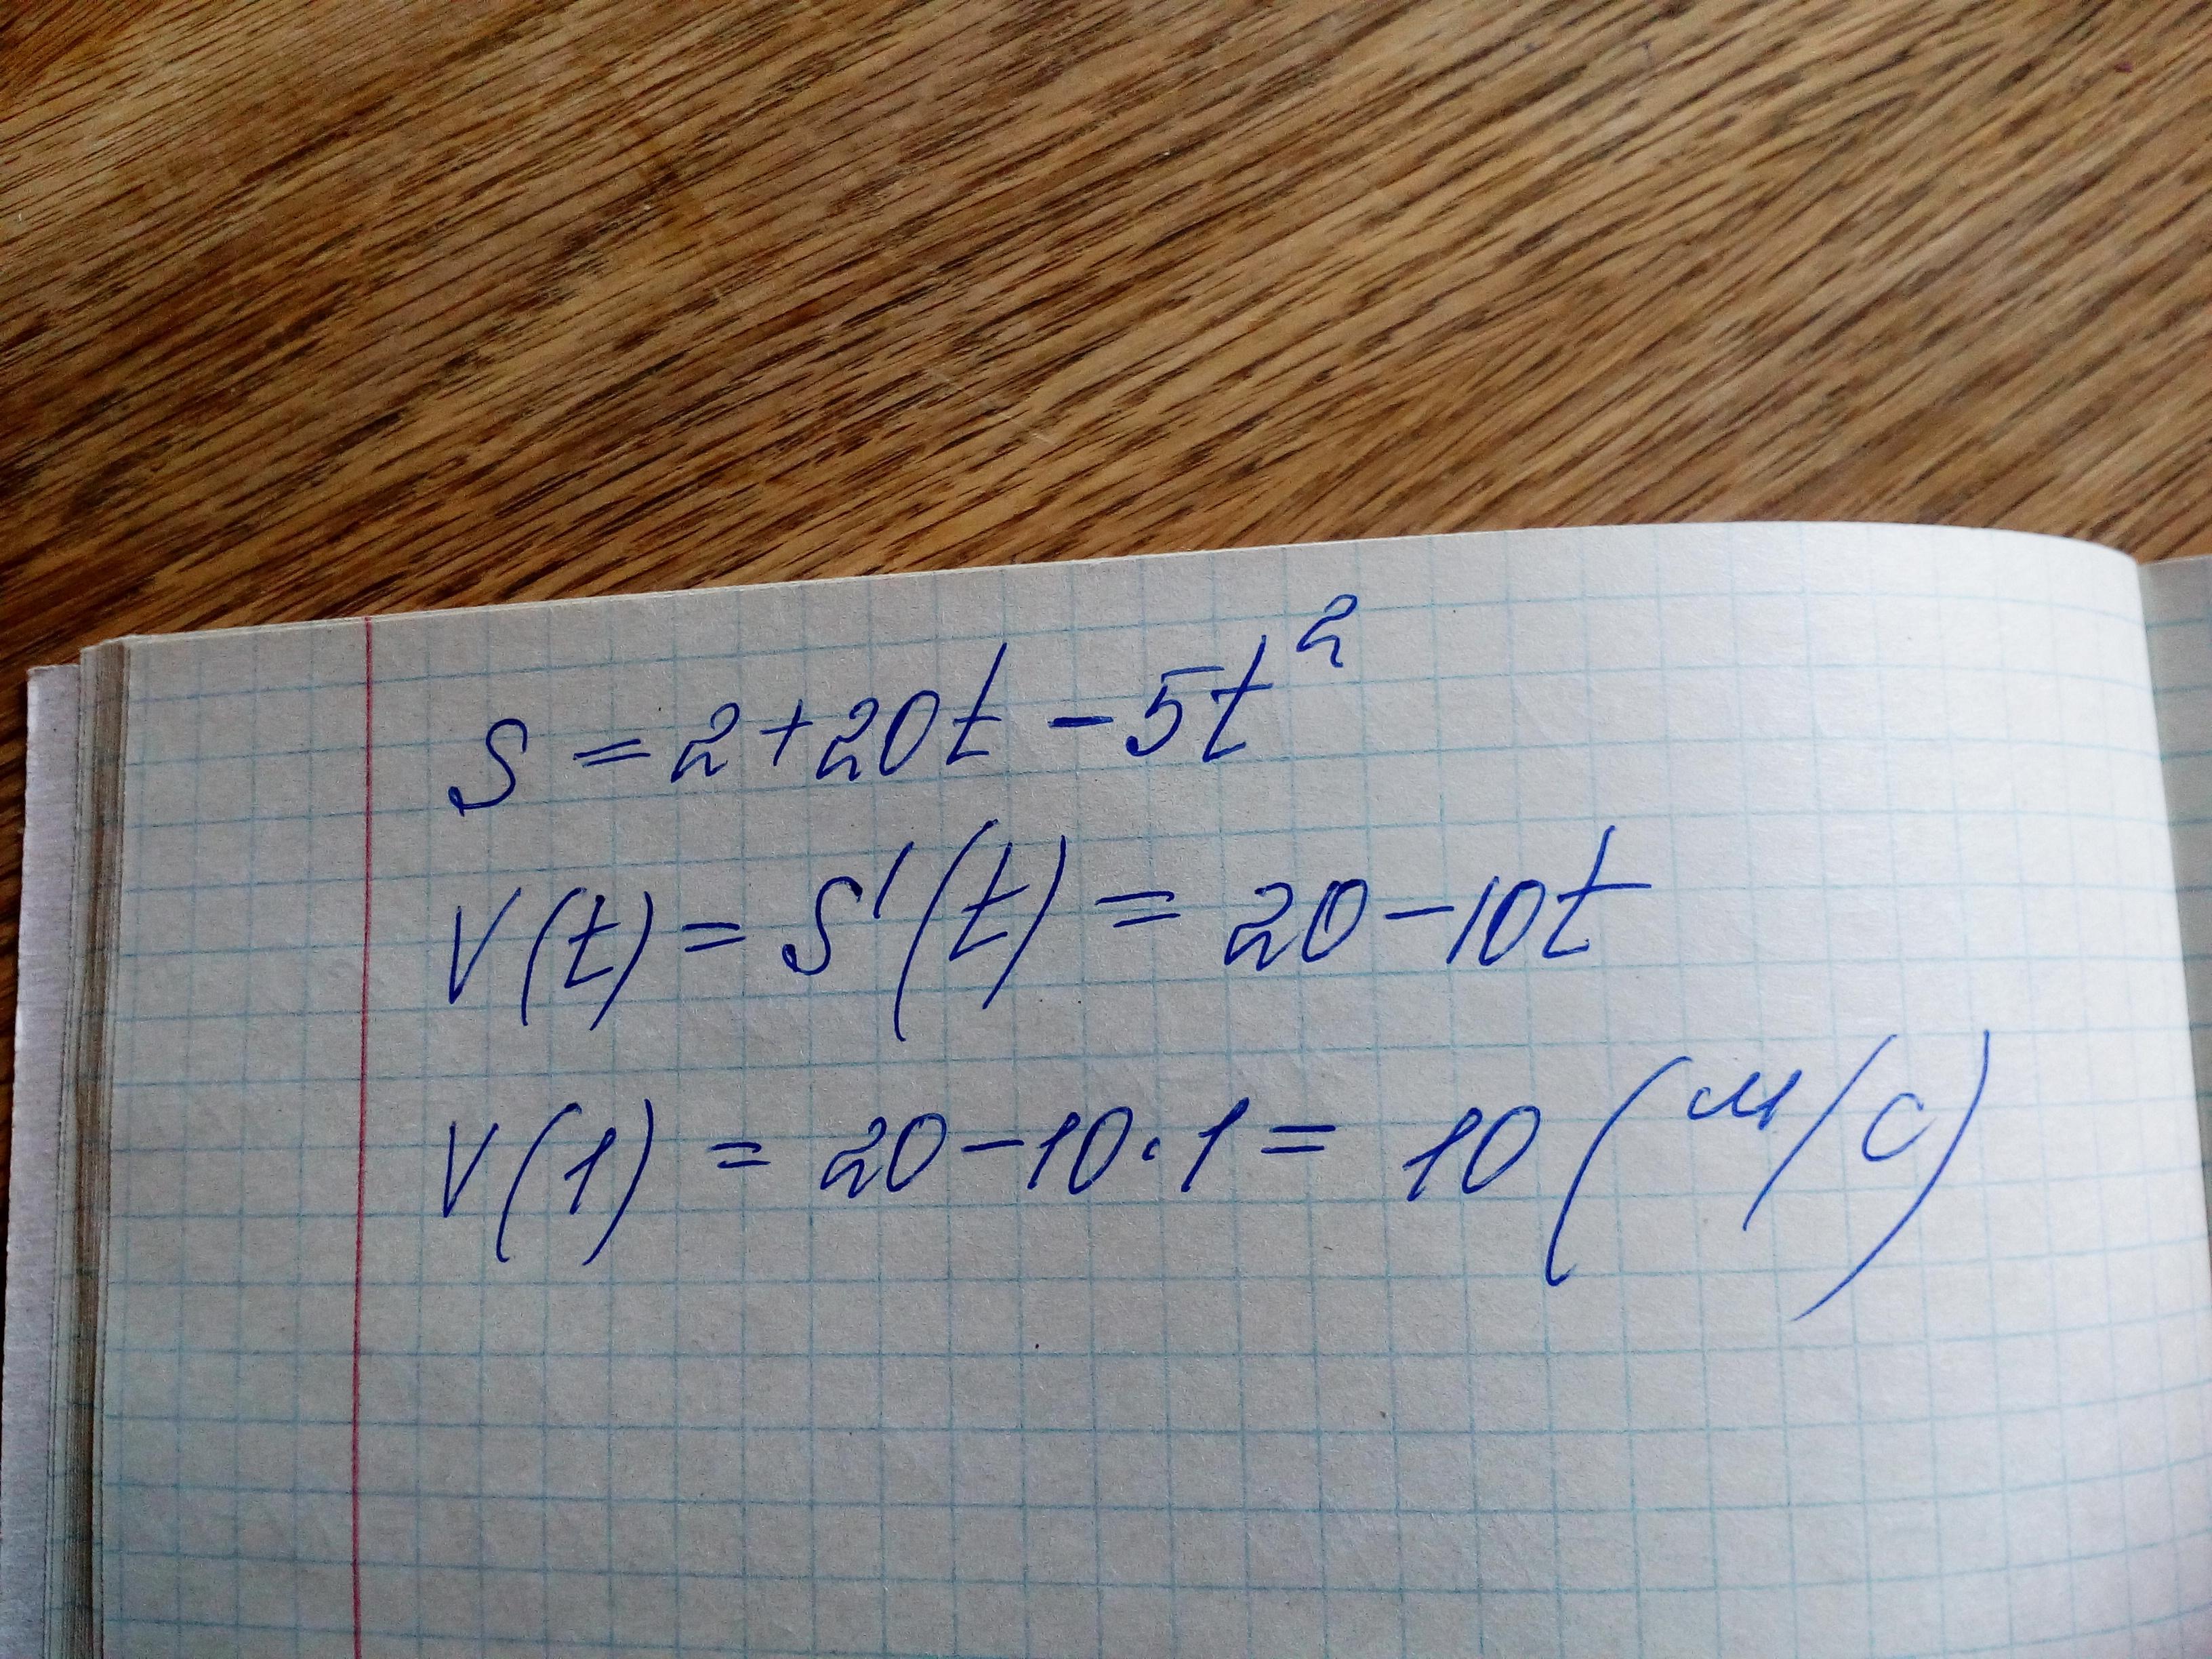 S = 2 + 20t - 5t²
V(t) = S'(t) = 20 - 10t
V(1) = 20 - 10 · 1 = 10 (м/с)